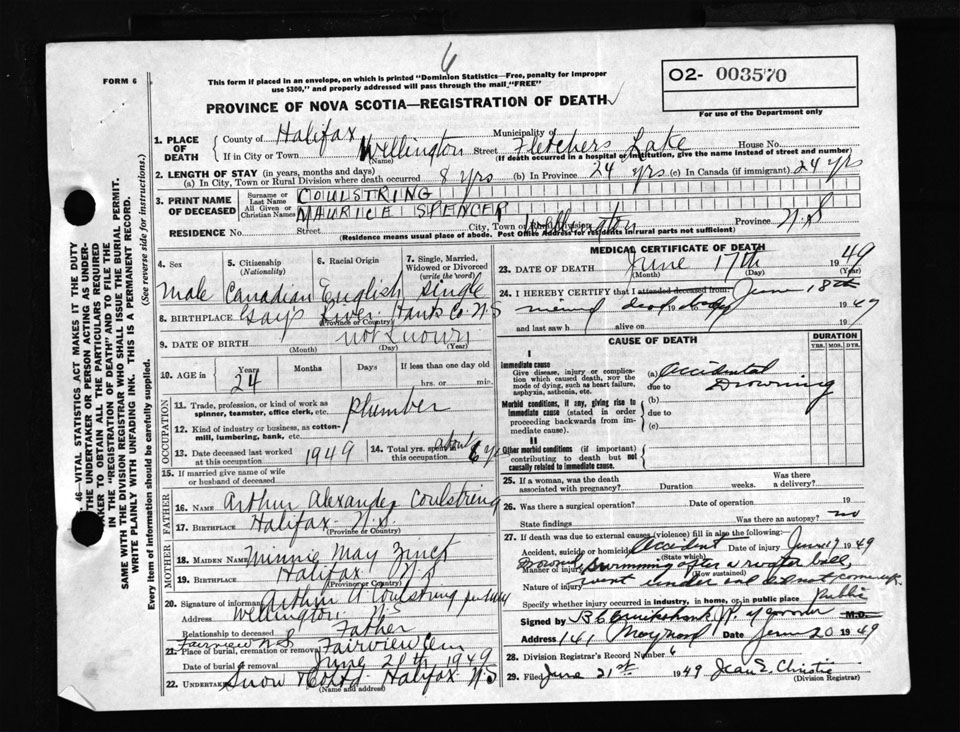 6
FORM 6
This form if placed in an envelope, on which is printed "Dominion Statistics—Free, penalty for improper
use $300," and properly addressed will pass through the mail "FREE"
O2- 003570
PROVINCE OF NOVA SCOTIA—REGISTRATION OF DEATH
For use of the Department only
1. PLACE OF DEATH County of Halifax Municipality of Fletchers Lake
If in City or Town Wellington (Name) Street House No.
(If death occurred in a hospital or institution, give the name instead of street and number)
2. LENGTH OF STAY (in years, months and days)
(a) In City, Town or Rural Division where death occurred 8 yrs (b) In Province 24 yrs (c) In Canada (if immigrant) 24 yrs
3. PRINT NAME OF DECEASED Surname or Last Name COULSTRING
All Given or Christian Names MAURICE SPENCER
RESIDENCE No. Street City, Town or Rural Division Wellington Province N.S
(Residence means usual place of abode. Post Office Address for residents in rural parts not sufficient)
4. Sex 5. Citizenship (Nationality) 6. Racial Origin 7. Single, Married, Widowed or Divorced (write the word)
Male Canadian English Single
8. BIRTHPLACE Gays River Hants Co. N.S
(Province or Country)
9. DATE OF BIRTH not known
(Month) (Day) (Year)
10. AGE in Years Months Days If less than one day old
24 hrs. or min.
OCCUPATION
11. Trade, profession, or kind of work as spinner, teamster, office clerk, etc. Plumber
12. Kind of industry or business, as cotton-mill, lumbering, bank, etc.
13. Date deceased last worked at this occupation 1949 14. Total yrs. spent in this occupation about 6 yrs
15. If married give name of wife or husband of deceased
FATHER
16. NAME Arthur Alexander Coulstring
17. BIRTHPLACE Halifax N.S
(Province or Country)
MOTHER
18. MAIDEN NAME Minnie May Zinck
19. BIRTHPLACE Halifax N.S
(Province or Country)
20. Signature of informant Arthur A Coulstring
Address Wellington N.S
Relationship to deceased Father
21. Place of burial, cremation or removal Fairview N.S Fairview Cem
Date of burial or removal June 21th 1949
22. Undertaker Snow & Co Ltd. Halifax N.S
(Name and address)
MEDICAL CERTIFICATE OF DEATH
23. DATE OF DEATH June 17th 1949
(Month) (Day) (Year)
24. I HEREBY CERTIFY that I attended deceased from June 18th
viewed dead body 1949
and last saw h alive on 19
CAUSE OF DEATH DURATION
YRS. MOS. DYS.
I
Immediate cause
Give disease, injury or complication which caused death, NOT the mode of dying, such as heart failure, asphyxia, asthenia, etc.
(a) Accidental
due to Drowning
Morbid conditions, if any, giving rise to immediate cause (stated in order proceeding backwards from immediate cause).
(b)
due to
(c)
II
Other morbid conditions (if important) contributing to death but not causally related to immediate cause.
25. If a woman, was the death associated with pregnancy? Duration weeks. Was there a delivery?
26. Was there a surgical operation? Date of operation 19
State findings Was there an autopsy? no
27. If death was due to external causes (violence) fill in also the following:
Accident, suicide or homicide? Accident (State which) Date of injury June 17 1949
Manner of injury Drowned swimming after a water ball
(How sustained)
Nature of injury went under and did not come up.
Specify whether injury occurred in industry, in home, or in public place Public
Signed by M.D.
Address 141 Date June 20 1949
28. Division Registrar's Record Number 6
29. Filed June 21st 1949 Jean E. Christie
(Division Registrar)
46—VITAL STATISTICS ACT MAKES IT THE DUTY
THE UNDERTAKER OR PERSON ACTING AS UNDER-
TAKER TO OBTAIN ALL THE PARTICULARS REQUIRED
IN THE "REGISTRATION OF DEATH" AND TO FILE THE
SAME WITH THE DIVISION REGISTRAR WHO SHALL ISSUE THE BURIAL PERMIT.
WRITE PLAINLY WITH UNFADING INK. THIS IS A PERMANENT RECORD.
Every item of information should be carefully supplied. (See reverse side for instructions.)